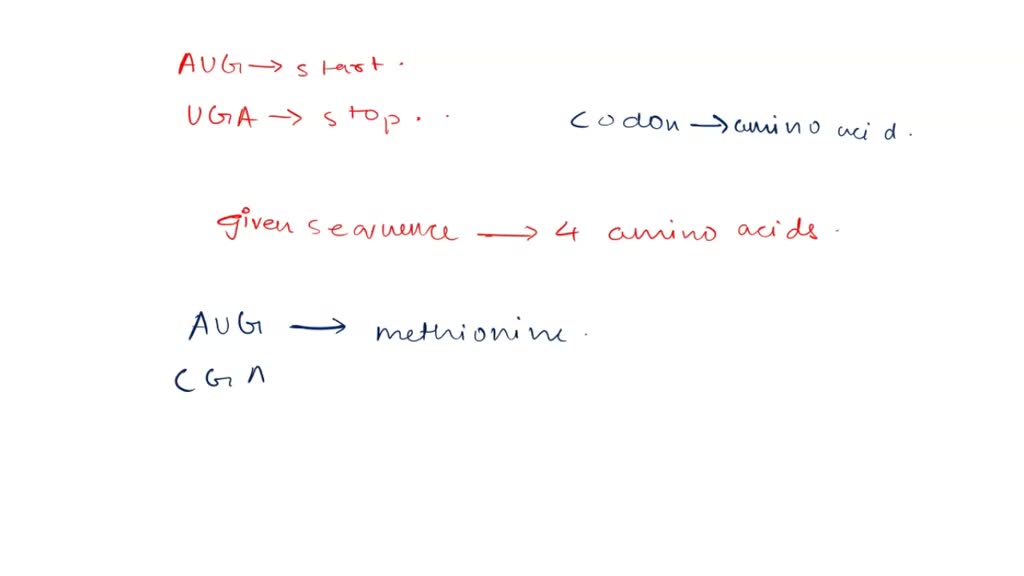 AUG → start.
UGA → stop.
codon → amino acid.
given sequence → 4 amino acids.
AUG → methionine.
CGA